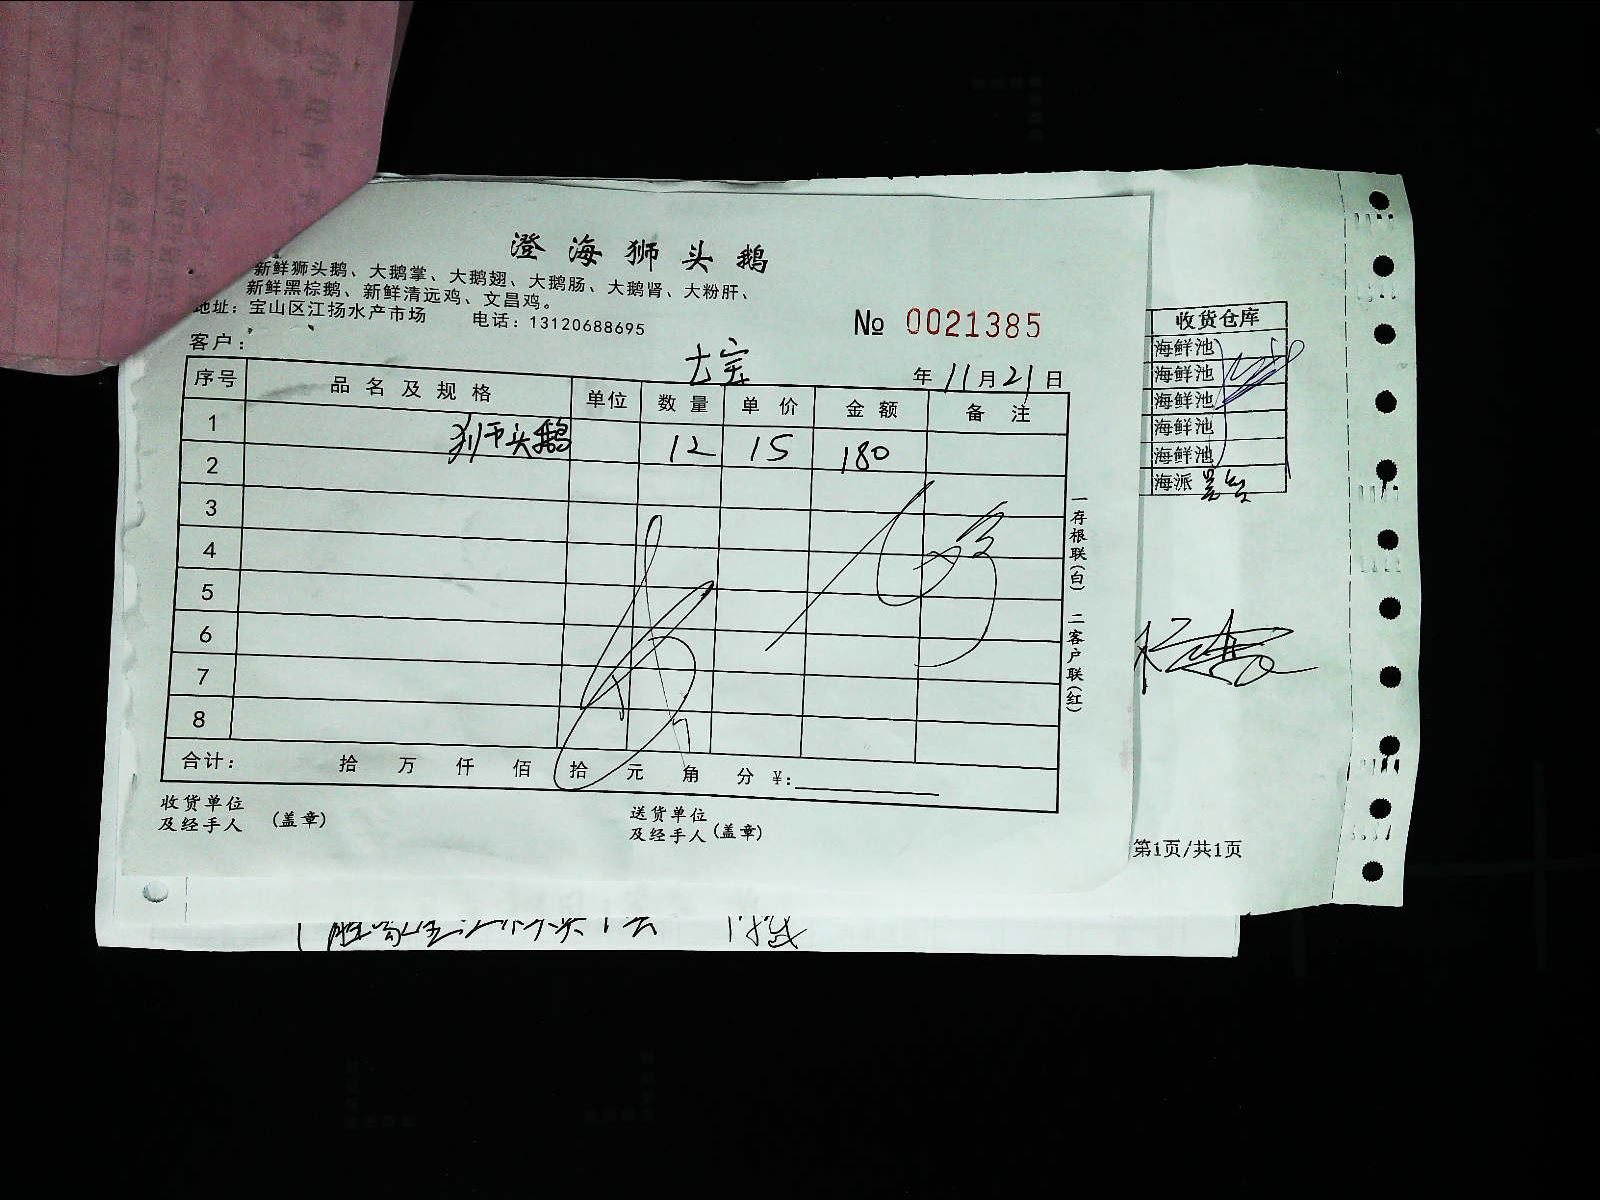 澄海狮头鹅
新鲜狮头鹅、大鹅掌、大鹅翅、大鹅肠、大鹅肾、大粉肝、
新鲜黑棕鹅、新鲜清远鸡、文昌鸡。
地址：宝山区江扬水产市场 电话：13120688695
№ 0021385
客户： 七宝 年 11 月 21 日
序号 品名及规格 单位 数量 单价 金额 备注
1 狮头鹅 12 15 180
2
3
4
5
6
7
8
合计： 拾 万 仟 佰 拾 元 角 分 ¥:
收货单位
及经手人 (盖章)
送货单位
及经手人 (盖章)
一存根联(白) 二客户联(红)
收货仓库
海鲜池
海鲜池
海鲜池
海鲜池
海鲜池
海派
第1页/共1页